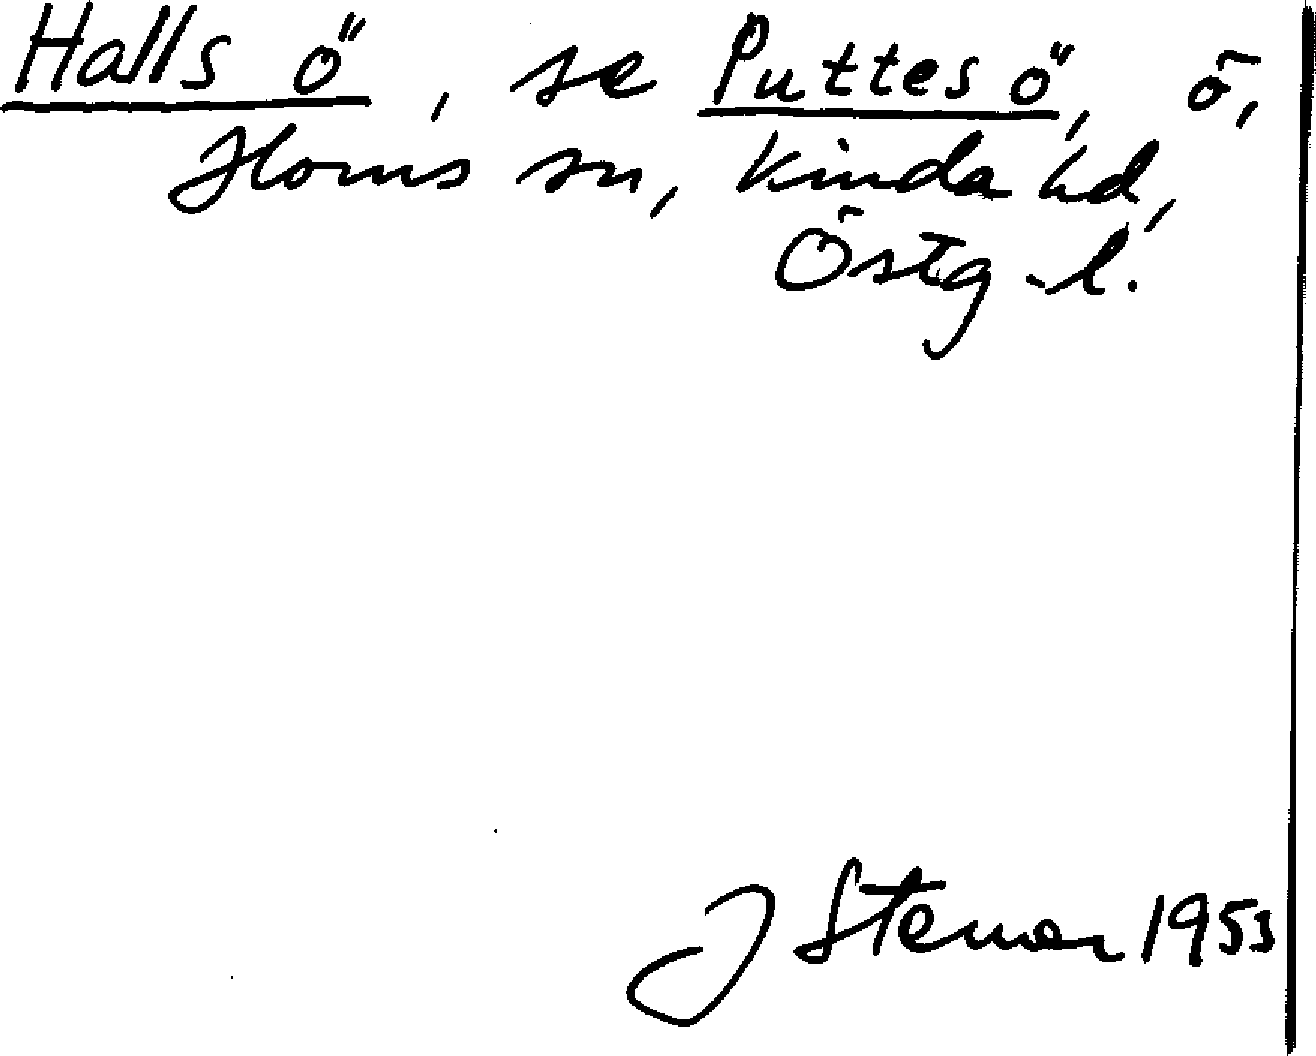 Halls ö, se Puttes ö, ö,
Horns sn, Kinda hd,
Östg-l.
J Stemar 1953